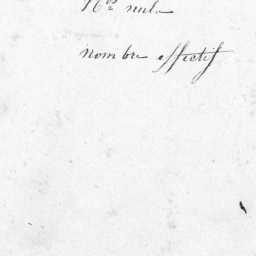 Nos nuls
nombre effectif